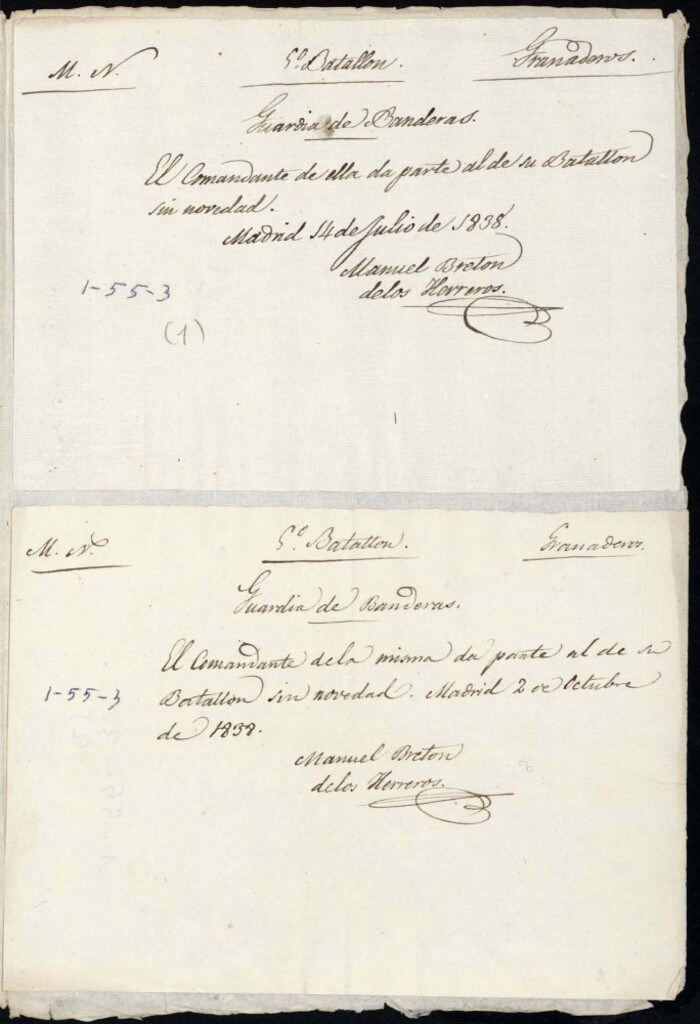 M. N.
5º Batallon.
Granaderos.
Guardia de Banderas.
El Comandante de ella da parte al de su Batallon
sin novedad.
Madrid 14 de Julio de 1838.
Manuel Breton
delos Herreros.
1-55-3
(1)
M. N.
5º Batallon.
Granaderos.
Guardia de Banderas.
El Comandante dela misma da parte al de su
Batallon sin novedad. Madrid 2 de Octubre
de 1838.
1-55-3
Manuel Breton
delos Herreros.